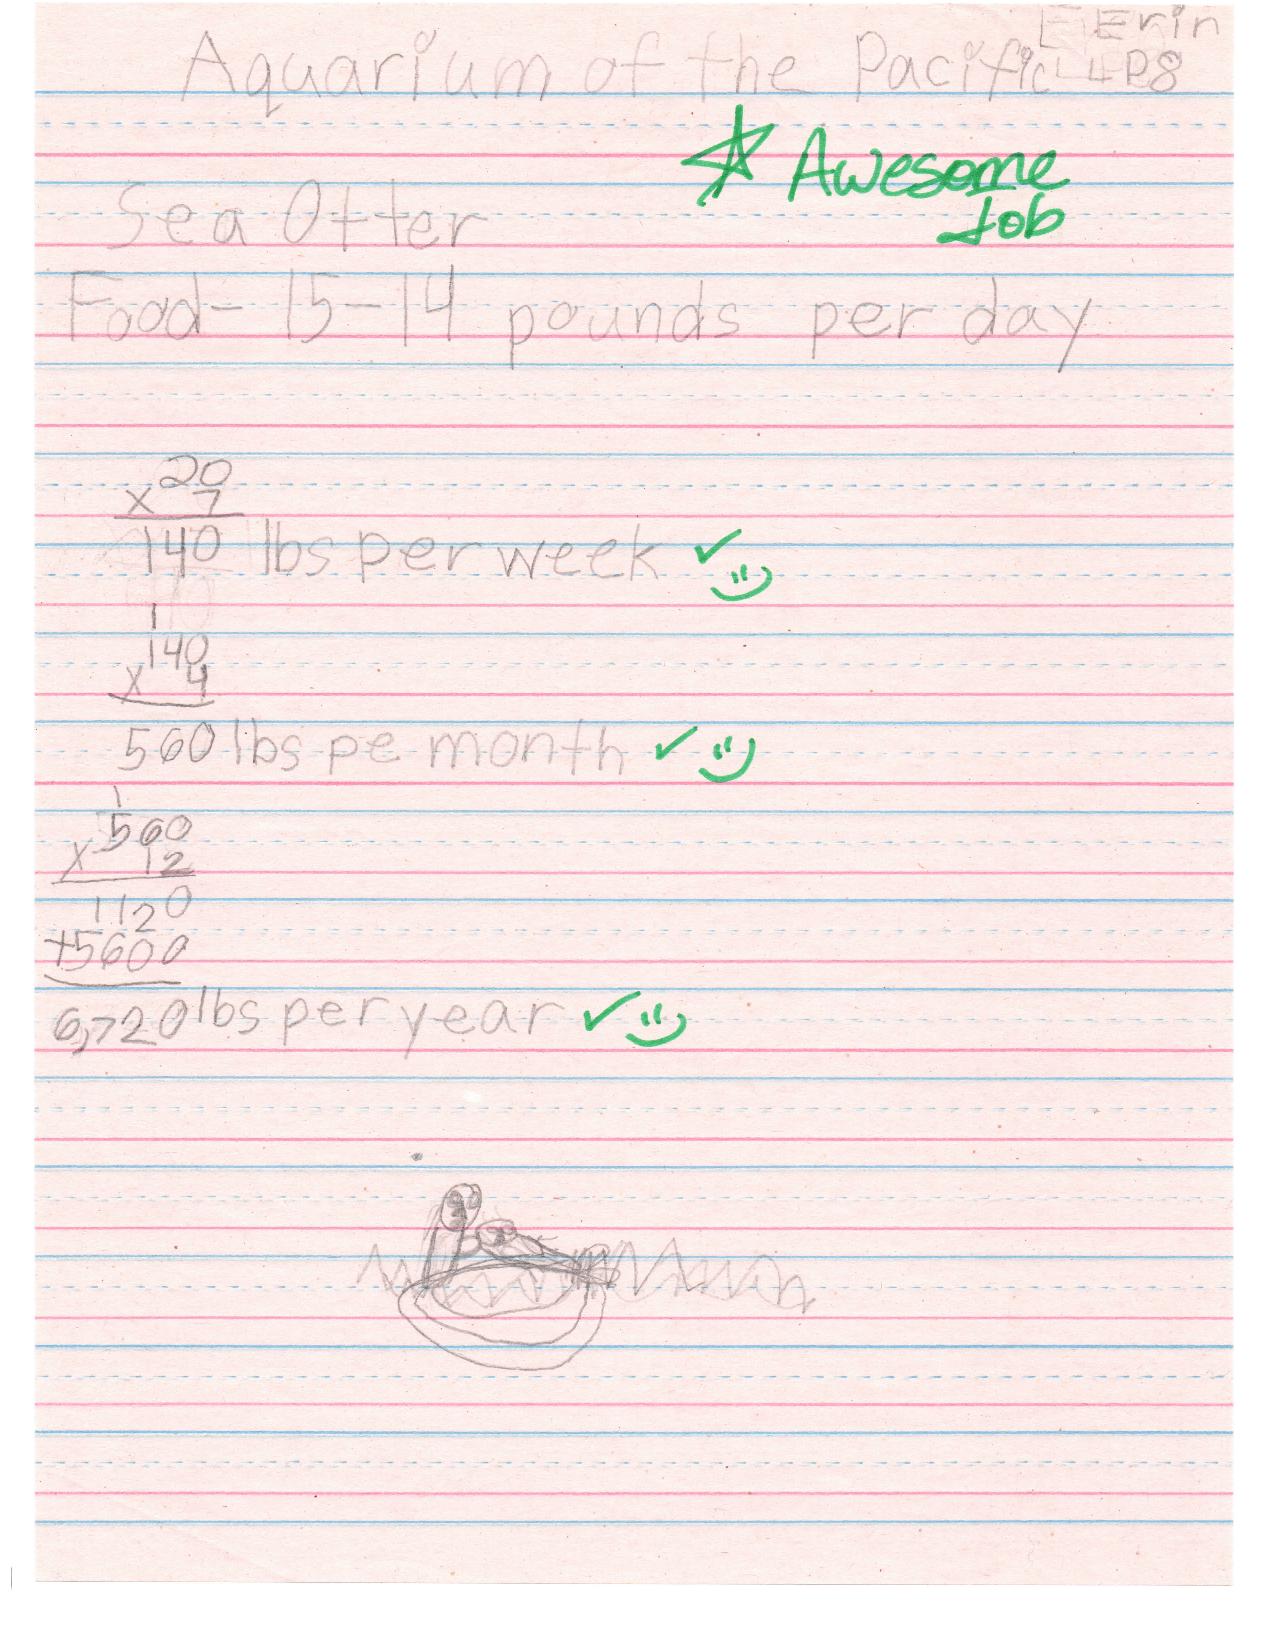 Erin
Aquarium of the Pacific
D8
☆ Awesome
Job
Sea Otter
Food- 15-14 pounds per day
20
x 7
140 lbs per week ✓
1
140
x 4
560 lbs pe month ✓
1
560
x 12
1120
+5600
6,720 lbs per year ✓